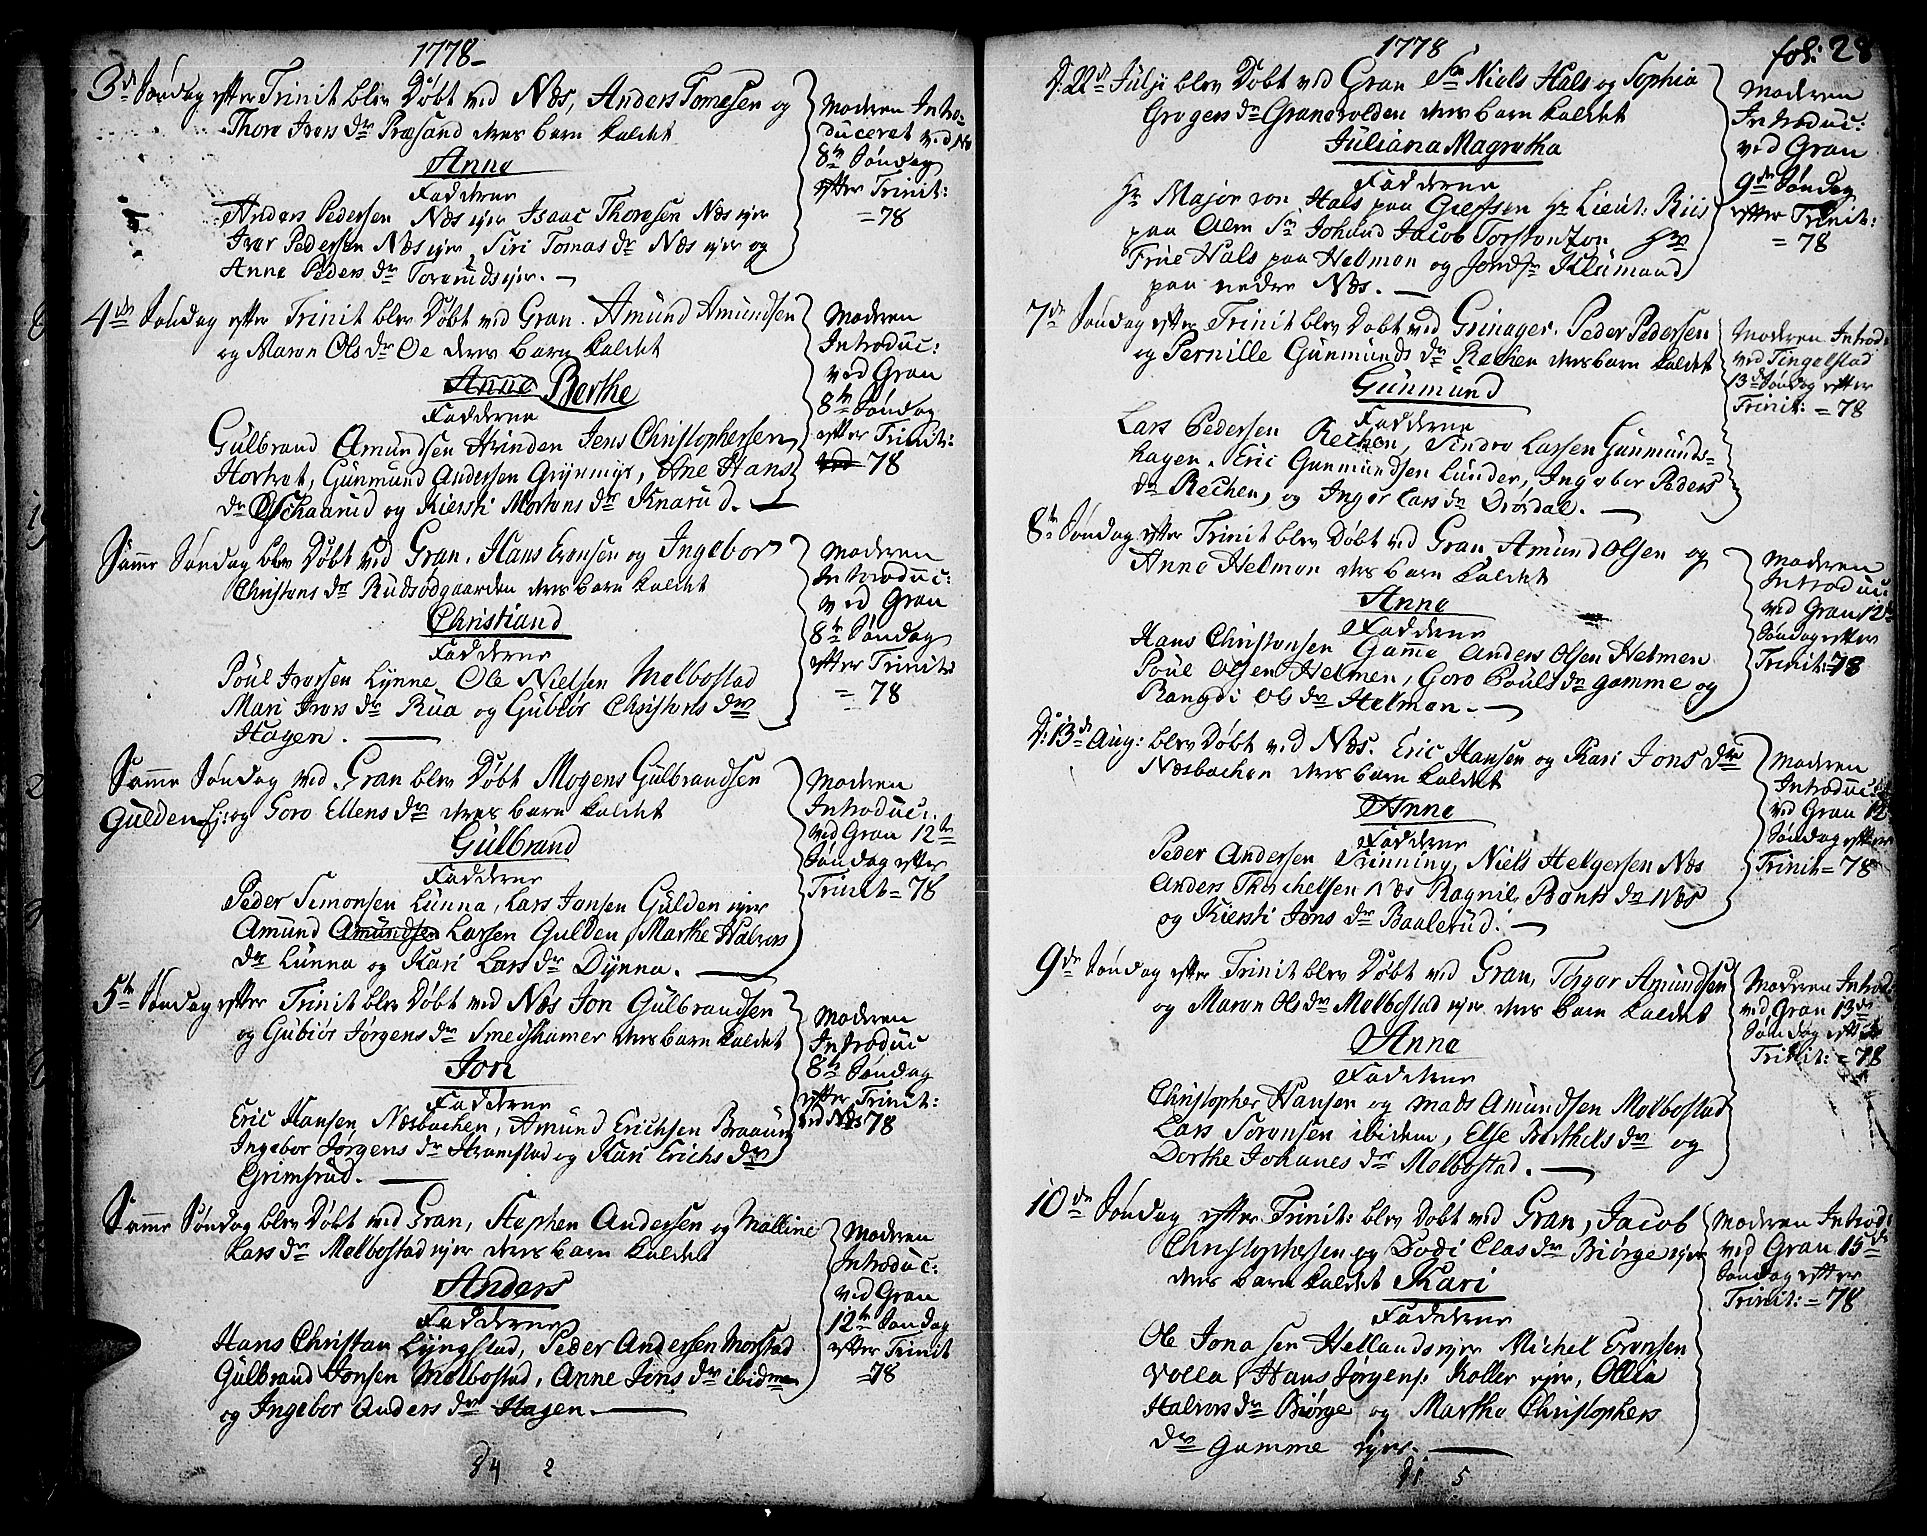 1778
3de Søndag efter Trinit blev Døbt ved Næs, Anders Tomesen og
Thore Ivers dr Præsand deres barn kaldet
Anne
Fadderne
Anders Pedersen Næs ejer Isaac Thoresen Næs ejer
Iver Pedersen Næs ejer, Siri Tomas dr Næs ejer og
Anne Peders dr
Moderen Intro-
duceret ved Næs
8de Søndag
efter Trinit:
= 78
4de Søndag efter Trinit blev Døbt ved Gran. Amund Amundsen
og Maren Ols dr Oe deres barn kaldet
Anne Berthe
Fadderne
Gulbrand Amundsen Hvinden Jens Christophersen
Gunmund Andersen Ane Hans
dr og Kiersti Mortens dr Knarud.
Moderen
Introduc:
ved Gran
8de Søndag
efter Trinit:
ved 78
Samme Søndag blev Døbt ved Gran, Hans Evensen og Ingebor
Christens dr Rudsødgaarden deres barn kaldet
Christiand
Fadderne
Poul Iversen Lynne, Ole Nielsen Melbostad
Mari Ivers dr Rua og Gubiør Christens dr
Hagen.
Moderen
Introduc:
ved Gran
8de Søndag
efter Trinit:
= 78
Samme Søndag ved Gran blev Døbt Mogens Gulbrandsen
Gulden Ej: og Goro Ellens dr deres barn kaldet
Gulbrand
Fadderne
Peder Simonsen Lunna, Lars Jensen Gulden ejer
Amund Amundsen Larsen Gulden, Marthe Halvors
dr Lunna og Kari Lars dr Dynna.
Moderen
Introduc:
ved Gran 12te
Søndag efter
Trinit = 78
5te Søndag efter Trinit blev Døbt ved Næs Jon Gulbrandsen
og Gubiør Jørgens dr Smedshamer deres barn kaldet
Jon
Fadderne
Eric Hansen Næsbachen, Amund Erichsen
Ingebor Jørgens dr og Kari Erichs dr
Grimsrud.
Moderen
Introduc
8de Søndag
efter Trinit:
ved Næs 78
Samme Søndag blev Døbt ved Gran, Stephen Andersen og Malline
Lars dr Melbostad ejer deres barn kaldet
Anders
Fadderne
Hans Christian Lyngstad, Peder Andersen Morstad
Gulbrand Jensen Melbostad, Anne Jens dr ibidem
og Ingebor Anders dr Hagen.
Moderen
Introduc:
ved Gran
12te Søndag
efter Trinit
= 78
2
1778
fol: 28
D: 22de Julji blev Døbt ved Gran Sr Niels Hals og Sophia
Gregers dr Granevolden deres barn kaldet
Juliana Magretha
Fadderne
Hr Major von Hals paa Hr Lieut: Riis
paa Alm Sr Johund Jacob
Frue Hals paa Helmen og
paa nedre Næs.
Moderen
Introduc:
ved Gran
9de Søndag
efter Trinit:
= 78
7de Søndag efter Trinit blev Døbt ved Grinager. Peder Pedersen
og Pernille Gunmunds dr Rechen deres barn kaldet
Gunmund
Fadderne
Lars Pedersen Rechen, Sindre Larsen Gunmunds-
hagen. Eric Gunmundsen Lunder, Ingebor Peders
dr Rechen, og Inger Lars dr
Moderen Introd:
ved Tingelstad
13de Søndag efter
Trinit: = 78
8de Søndag efter Trinit blev Døbt ved Gran Amund Olsen og
Anne Helmen deres barn kaldet
Anne
Fadderne
Hans Christensen Gamme Anders Olsen Helmen
Poul Olsen Helmen, Goro Pouls dr gamme og
Rangdi Ols dr Helmen.
Moderen
Introduc:
ved Gran 12te
Søndag efter
Trinit: 78
D: 13de Aug: blev Døbt ved Næs. Eric Hansen og Kari Jons dr
Næsbachen deres barn kaldet
Anne
Fadderne
Peder Andersen Niels Helgersen Næs
Anders Thorchelsen Næs Ragnil Bents dr Næs
og Kiersti Jens dr Baalerud.
Moderen
Introduc:
ved Gran 12
Søndag efter
Trinit = 78
9de Søndag efter Trinit blev Døbt ved Gran, Torger Amundsen
og Maren Ols dr Melbostad ejer deres barn kaldet
Anne
Fadderne
Christopher Hansen og Mads Amundsen Melbostad
Lars Sørensen ibidem, Else Berthels dr og
Dorthe Johanes dr Melbostad.
Moderen Introd:
ved Gran 13de
Søndag efter
Trinit: = 78
10de Søndag efter Trinit: blev Døbt ved Gran, Jacob
Christophersen og Dodi Clas dr Biørge ejer
deres barn kaldet Kari
Fadderne
Ole Jonasen Hellandsejer Michel Evensen
Volla, Hans Jørgens: Koller ejer, Ollia
Halvors dr Biørge og Marthe Christophers
dr Gamme ejer.
Moderen Introd:
ved Gran 15de
Søndag efter
Trinit: = 78
5